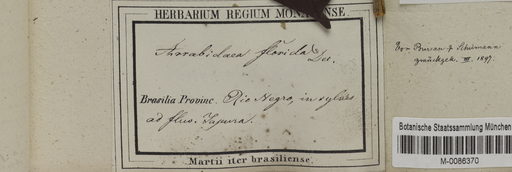 HERBARIUM REGIUM MONACENSE.
Arrabidaea florida Dc.
Brasilia Provinc. Rio Negro, in sylvis
ad fluv. Japura.
Martii iter brasiliense.
Von Bureau & Schumann
zurückgek. III. 1897.
Botanische Staatssammlung München
M-0086370